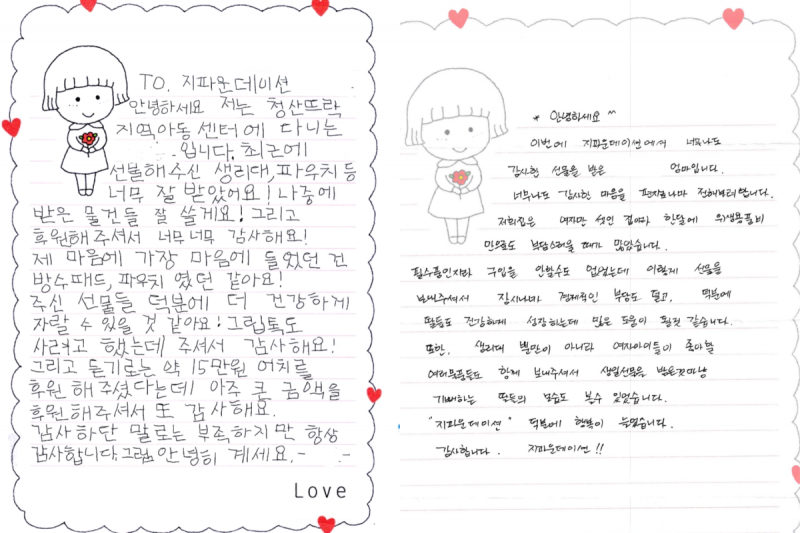 TO. 지파운데이션
안녕하세요 저는 청산뜨락
지역아동센터에 다니는
입니다. 최근에
선물해주신 생리대, 파우치 등
너무 잘 받았어요! 나중에
받은 물건들 잘 쓸게요! 그리고
후원해주셔서 너무너무 감사해요!
제 마음에 가장 마음에 들었던 건
방수패드, 파우치 였던 같아요!
주신 선물들 덕분에 더 건강하게
자랄 수 있을 것 같아요! 그립톡도
사려고 했는데 주셔서 감사해요!
그리고 듣기로는 약 15만원 어치를
후원 해주셨다는데 아주 큰 금액을
후원해주셔서 또 감사해요.
감사하단 말로는 부족하지만 항상
감사합니다. 그럼 안녕히 계세요.-
Love
* 안녕하세요 ^^
이번에 지파운데이션에서 너무나도
감사한 선물을 받은 엄마입니다.
너무나도 감사한 마음을 편지로나마 전해봐요됩니다.
저희집은 여자만 셋인 집이라 한달에 위생용품비
만으로도 부담스러울 때가 많았습니다.
필수품인지라 구입을 안할수도 없었는데 이렇게 선물을
보내주셔서 잠시나마 경제적인 부담도 덜고, 덕분에
딸들도 건강하게 성장하는데 많은 도움이 될것 같습니다.
또한, 생리대 뿐만이 아니라 여자아이들이 좋아할
여러물품들도 함께 보내주셔서 생일선물을 받은것마냥
기뻐하는 딸들의 모습도 볼수 있었습니다.
"지파운데이션" 덕분에 행복이 늘었습니다.
감사합니다. 지파운데이션!!